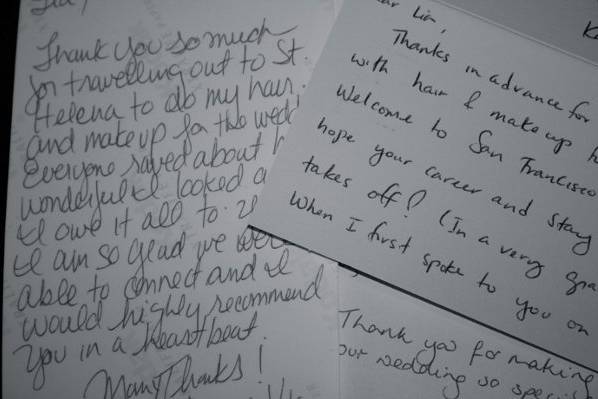 Thank you so much
for travelling out to St.
Helena to do my hair
and makeup for the
Everyone raved about
wonderful I looked
I owe it all to
I am so glad we were
able to connect and I
would highly recommend
you in a heartbeat
Many Thanks!
Thanks in advance for
with hair & makeup
Welcome to San Francisco
hope your career and stay
takes off! (In a very
When I first spoke to you on
Thank you for making
our wedding so